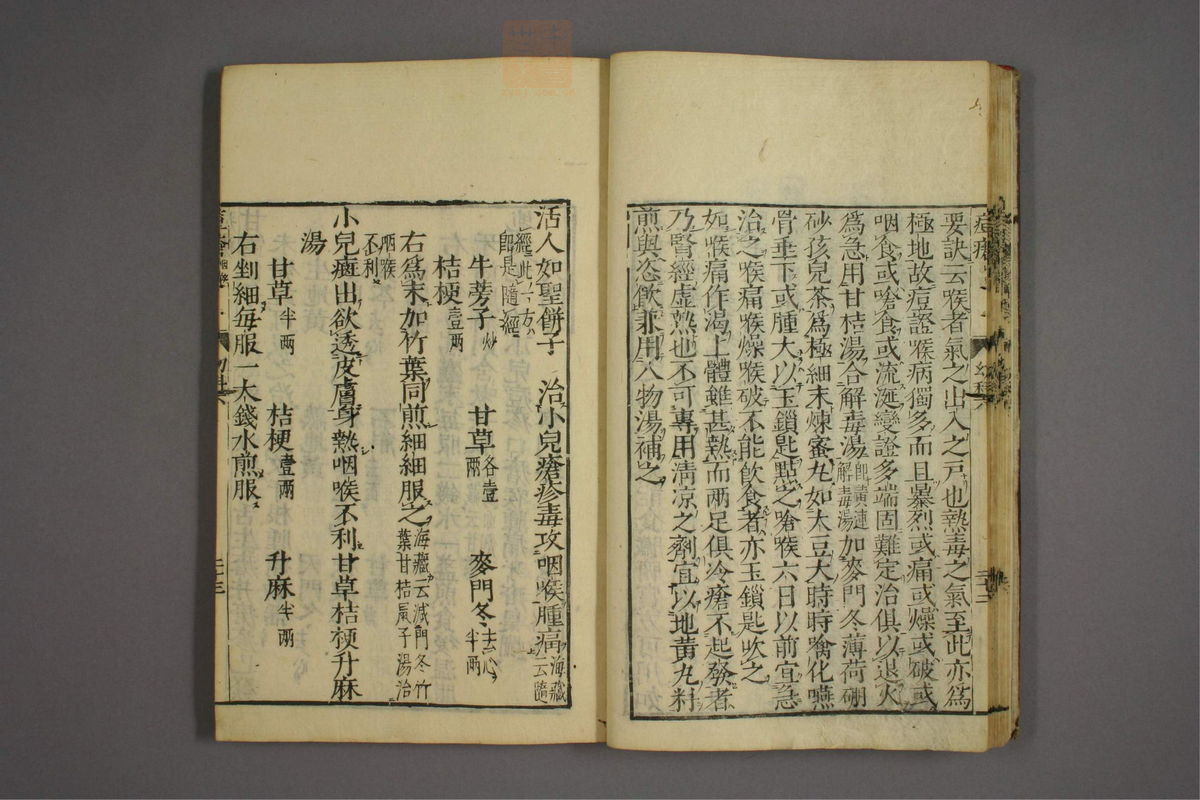 要訣云喉者氣之出入之戸也熱毒之氣至此亦爲
極地故痘證喉病獨多而且暴烈或痛或燥或破或
咽食或嗆食或流涎變證多端固難定治俱以退火
爲急用甘桔湯合解毒湯即黄連解毒湯加麥門冬薄荷硼
砂孩兒茶爲極細末煉蜜丸如大豆大時時噙化嚥
骨垂下或腫大以玉鎖匙點之嗆喉六日以前宜急
治之喉痛喉燥喉破不能飲食者亦玉鎖匙吹之
如喉痛作渴上體雖甚熱而兩足俱冷瘡不起發者
乃腎經虛熱也不可專用清凉之劑宜以地黄丸料
煎與恣飲兼用八物湯補之
活人如聖餠子 治小兒瘡疹毒攻咽喉腫痛海藏云隨
經此一方即是隨經
牛蒡子炒 甘草各壹兩 麥門冬去心半兩
桔梗壹兩
右爲末加竹葉同煎細細服之海藏云減門冬竹葉甘桔鼠子湯治
咽喉不利
小兒痘出欲透皮膚身熱咽喉不利甘草桔梗升麻
湯
甘草半兩 桔梗壹兩 升麻半兩
右剉細每服一大錢水煎服